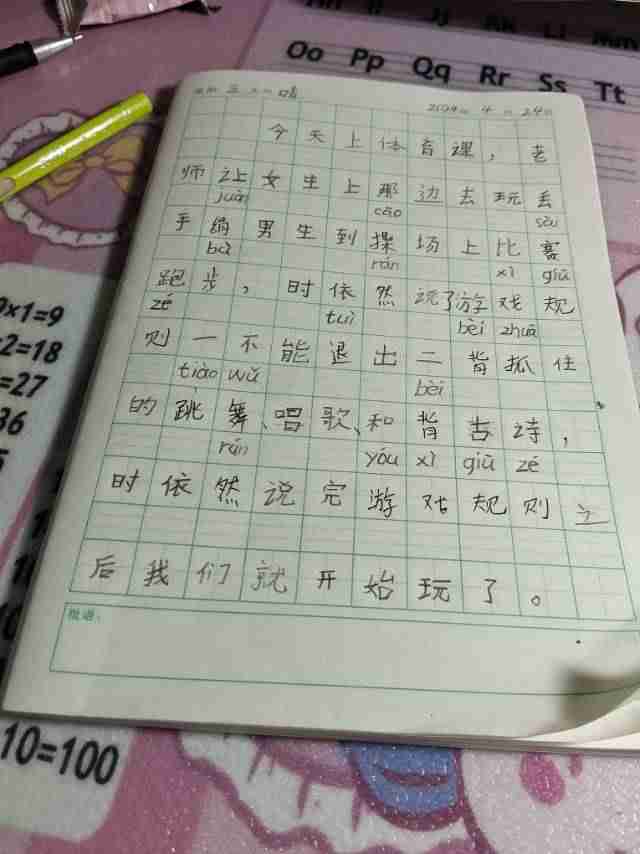 Jj Kk Ll Mm
Oo Pp Qq Rr Ss Tt
星期三 天气晴 2024年4月24日
今天上体育课，老
师让女生上那边去玩丢
juàn cāo sài
手绢男生到操场上比赛
bù rán xì guī
跑步，时依然说了游戏规
zé tuì bèi zhuā
则一不能退出二背抓住
tiào wǔ bèi
的跳舞、唱歌、和背古诗，
rán yóu xì guī zé
时依然说完游戏规则之
后我们就开始玩了。
批语：
9×1=9
×2=18
=27
36
10=100